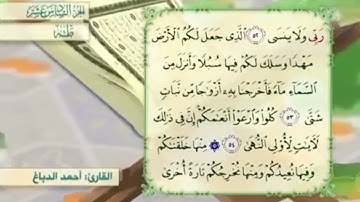 الجزء السادس عشر
طه
رَبِّي وَلَا يَنسَى ٥٢ الَّذِي جَعَلَ لَكُمُ الْأَرْضَ
مَهْدًا وَسَلَكَ لَكُمْ فِيهَا سُبُلًا وَأَنزَلَ مِنَ
السَّمَاءِ مَاءً فَأَخْرَجْنَا بِهِ أَزْوَاجًا مِّن نَّبَاتٍ
شَتَّى ٥٣ كُلُوا وَارْعَوْا أَنْعَامَكُمْ إِنَّ فِي ذَلِكَ
لَآيَاتٍ لِّأُولِي النُّهَى ٥٤ مِنْهَا خَلَقْنَاكُمْ
وَفِيهَا نُعِيدُكُمْ وَمِنْهَا نُخْرِجُكُمْ تَارَةً أُخْرَى
القارئ: أحمد الدباغ